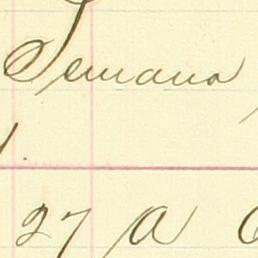 Semana
27 A